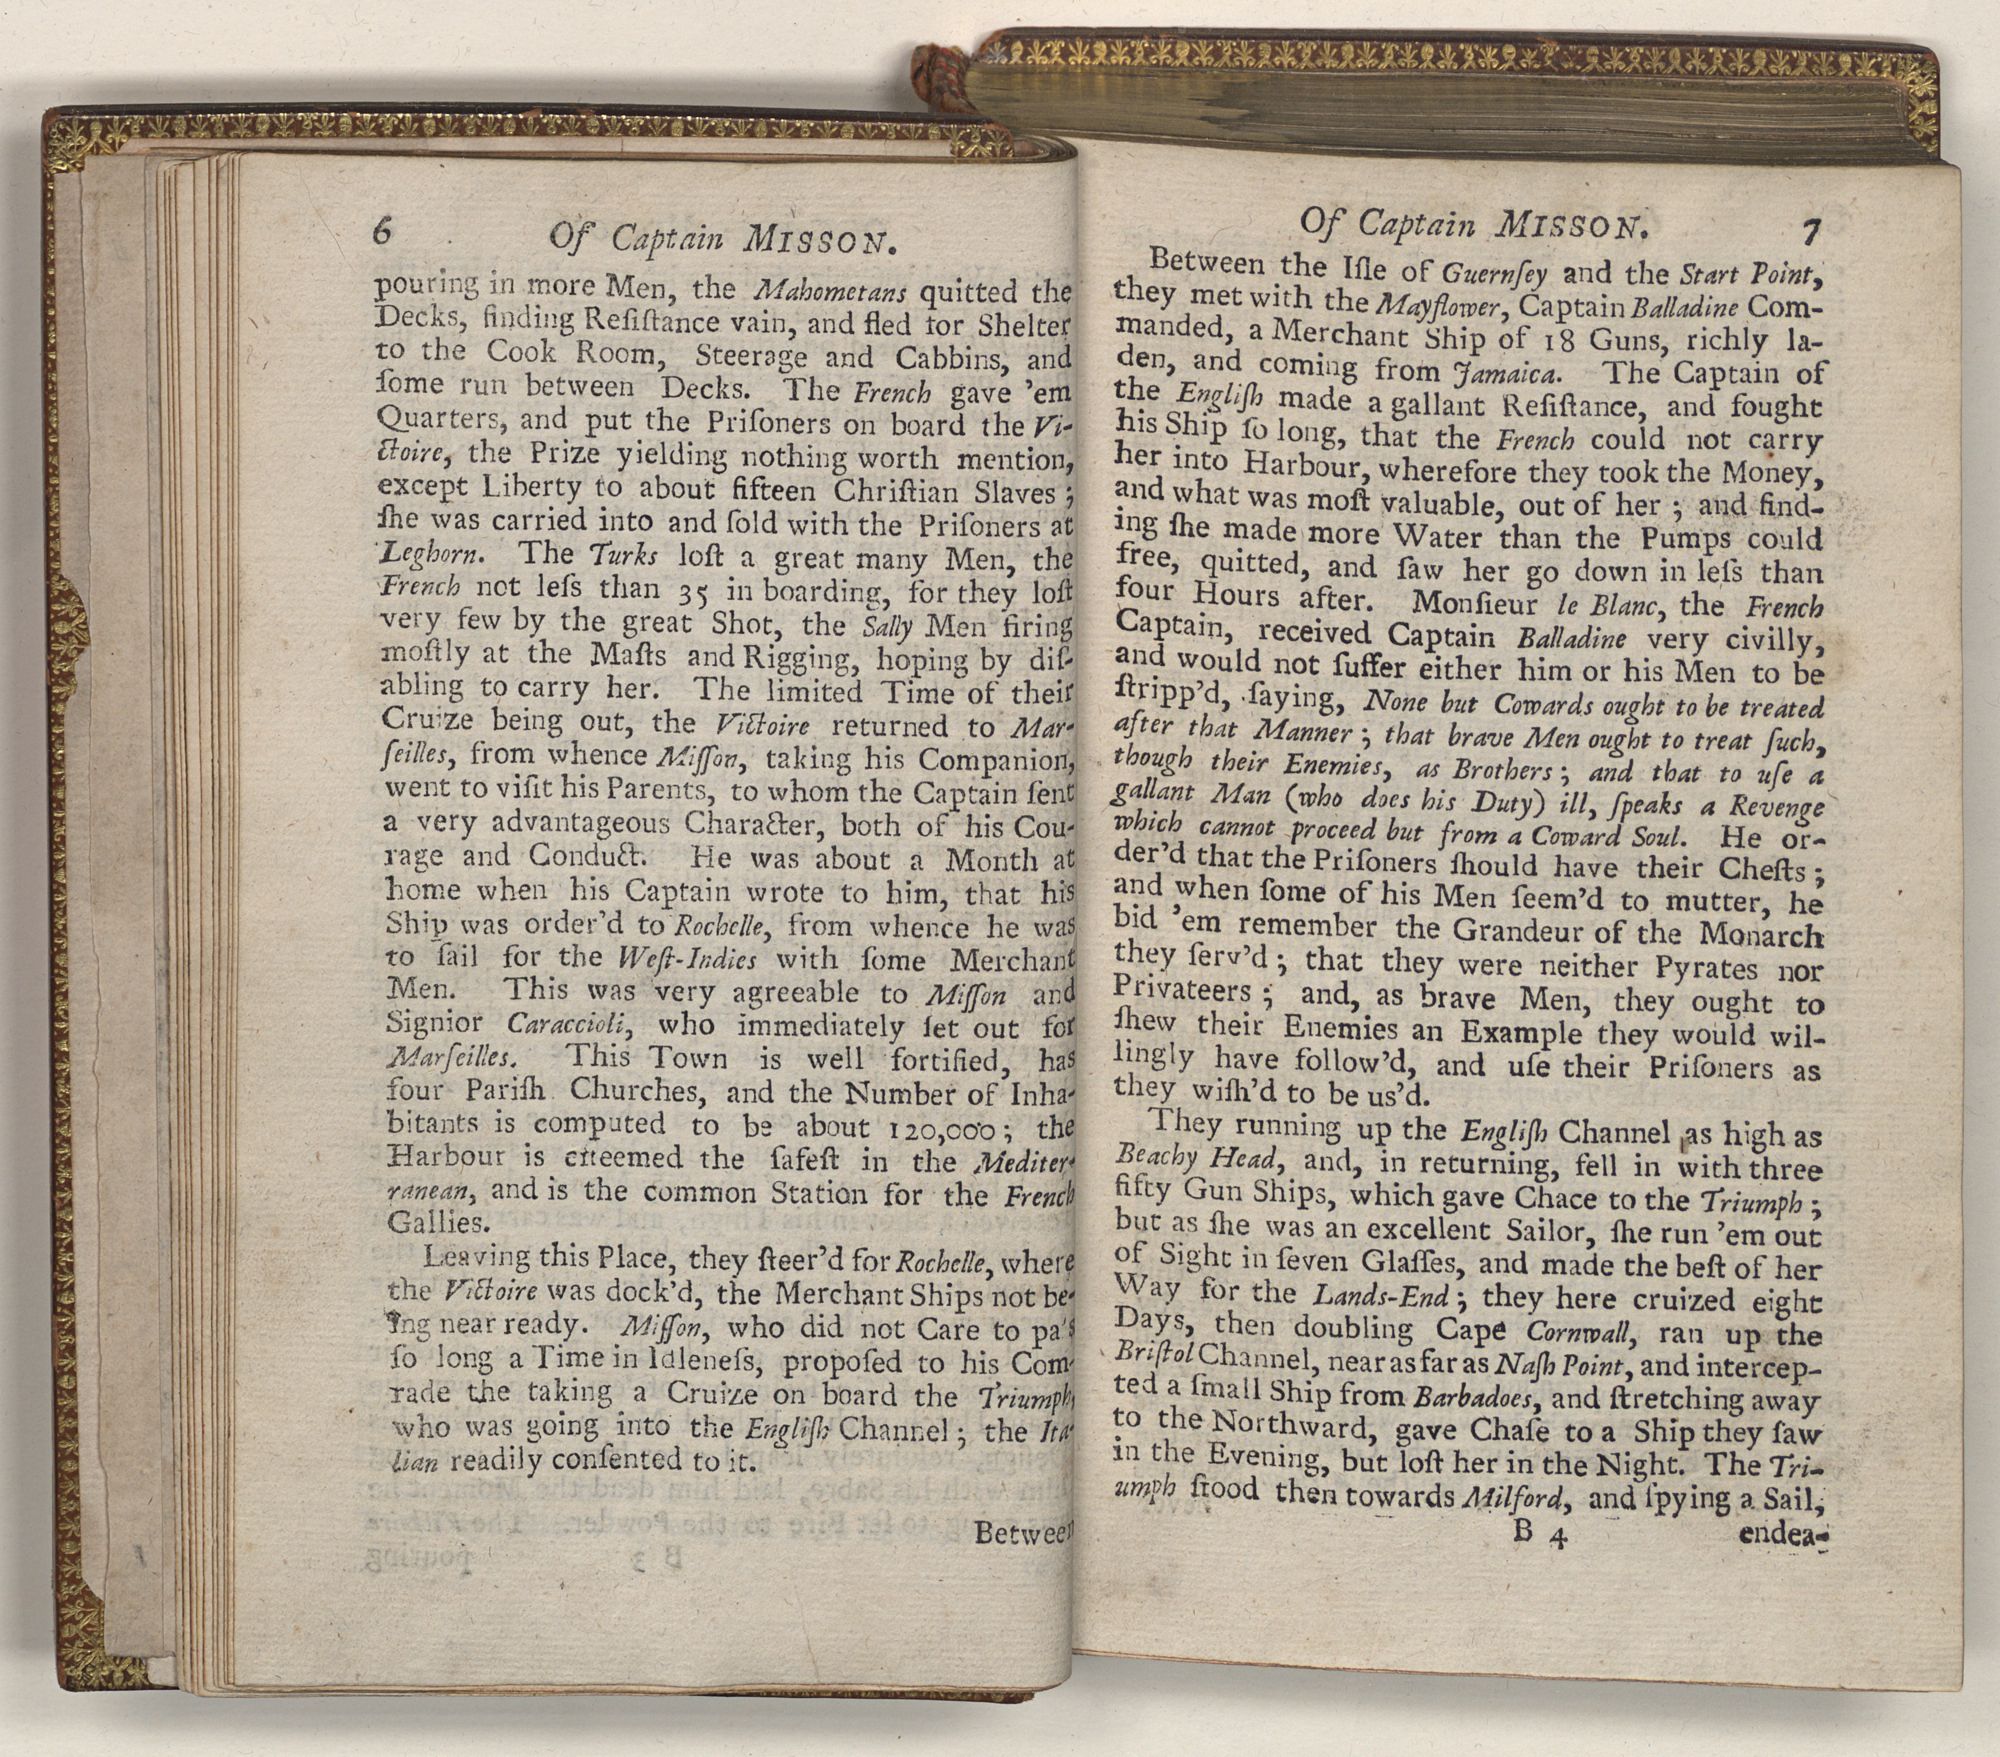 6 Of Captain MISSON.
pouring in more Men, the Mahometans quitted the
Decks, finding Reſiſtance vain, and fled for Shelter
to the Cook Room, Steerage and Cabbins, and
ſome run between Decks. The French gave 'em
Quarters, and put the Priſoners on board the Vi-
ctoire, the Prize yielding nothing worth mention,
except Liberty to about fifteen Chriſtian Slaves;
ſhe was carried into and ſold with the Priſoners at
Leghorn. The Turks loſt a great many Men, the
French not leſs than 35 in boarding, for they loſt
very few by the great Shot, the Sally Men firing
moſtly at the Maſts and Rigging, hoping by diſ-
abling to carry her. The limited Time of their
Cruize being out, the Victoire returned to Mar-
ſeilles, from whence Miſſon, taking his Companion,
went to viſit his Parents, to whom the Captain ſent
a very advantageous Character, both of his Cou-
rage and Conduct. He was about a Month at
home when his Captain wrote to him, that his
Ship was order'd to Rochelle, from whence he was
to ſail for the Weſt-Indies with ſome Merchant
Men. This was very agreeable to Miſſon and
Signior Caraccioli, who immediately ſet out for
Marſeilles. This Town is well fortified, has
four Pariſh Churches, and the Number of Inha-
bitants is computed to be about 120,000; the
Harbour is eſteemed the ſafeſt in the Mediter-
ranean, and is the common Station for the French
Gallies.
Leaving this Place, they ſteer'd for Rochelle, where
the Victoire was dock'd, the Merchant Ships not be-
ing near ready. Miſſon, who did not Care to paſs
ſo long a Time in Idleneſs, propoſed to his Com-
rade the taking a Cruize on board the Triumph,
who was going into the Engliſh Channel; the Ita-
lian readily conſented to it.
Between
Of Captain MISSON. 7
Between the Iſle of Guernſey and the Start Point,
they met with the Mayflower, Captain Balladine Com-
manded, a Merchant Ship of 18 Guns, richly la-
den, and coming from Jamaica. The Captain of
the Engliſh made a gallant Reſiſtance, and fought
his Ship ſo long, that the French could not carry
her into Harbour, wherefore they took the Money,
and what was moſt valuable, out of her; and find-
ing ſhe made more Water than the Pumps could
free, quitted, and ſaw her go down in leſs than
four Hours after. Monſieur le Blanc, the French
Captain, received Captain Balladine very civilly,
and would not ſuffer either him or his Men to be
ſtripp'd, ſaying, None but Cowards ought to be treated
after that Manner; that brave Men ought to treat ſuch,
though their Enemies, as Brothers; and that to uſe a
gallant Man (who does his Duty) ill, ſpeaks a Revenge
which cannot proceed but from a Coward Soul. He or-
der'd that the Priſoners ſhould have their Cheſts;
and when ſome of his Men ſeem'd to mutter, he
bid 'em remember the Grandeur of the Monarch
they ſerv'd; that they were neither Pyrates nor
Privateers; and, as brave Men, they ought to
ſhew their Enemies an Example they would wil-
lingly have follow'd, and uſe their Priſoners as
they wiſh'd to be us'd.
They running up the Engliſh Channel as high as
Beachy Head, and, in returning, fell in with three
fifty Gun Ships, which gave Chace to the Triumph;
but as ſhe was an excellent Sailor, ſhe run 'em out
of Sight in ſeven Glaſſes, and made the beſt of her
Way for the Lands-End; they here cruized eight
Days, then doubling Cape Cornwall, ran up the
Briſtol Channel, near as far as Naſh Point, and intercep-
ted a ſmall Ship from Barbadoes, and ſtretching away
to the Northward, gave Chaſe to a Ship they ſaw
in the Evening, but loſt her in the Night. The Tri-
umph ſtood then towards Milford, and ſpying a Sail,
B 4 endea-